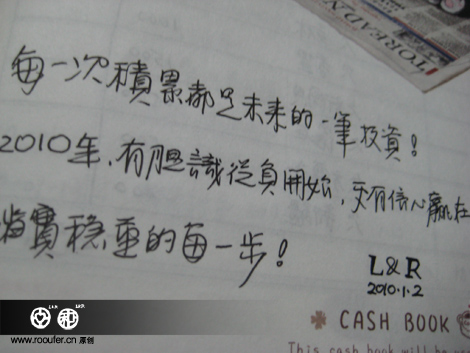 每一次積累都是未来的一筆投資!
2010年,有胆識從負開始,更有信心贏在
踏實稳重的每一步!
L&R
2010.1.2
CASH BOOK
This cash book will be
www.rooufer.cn 原创